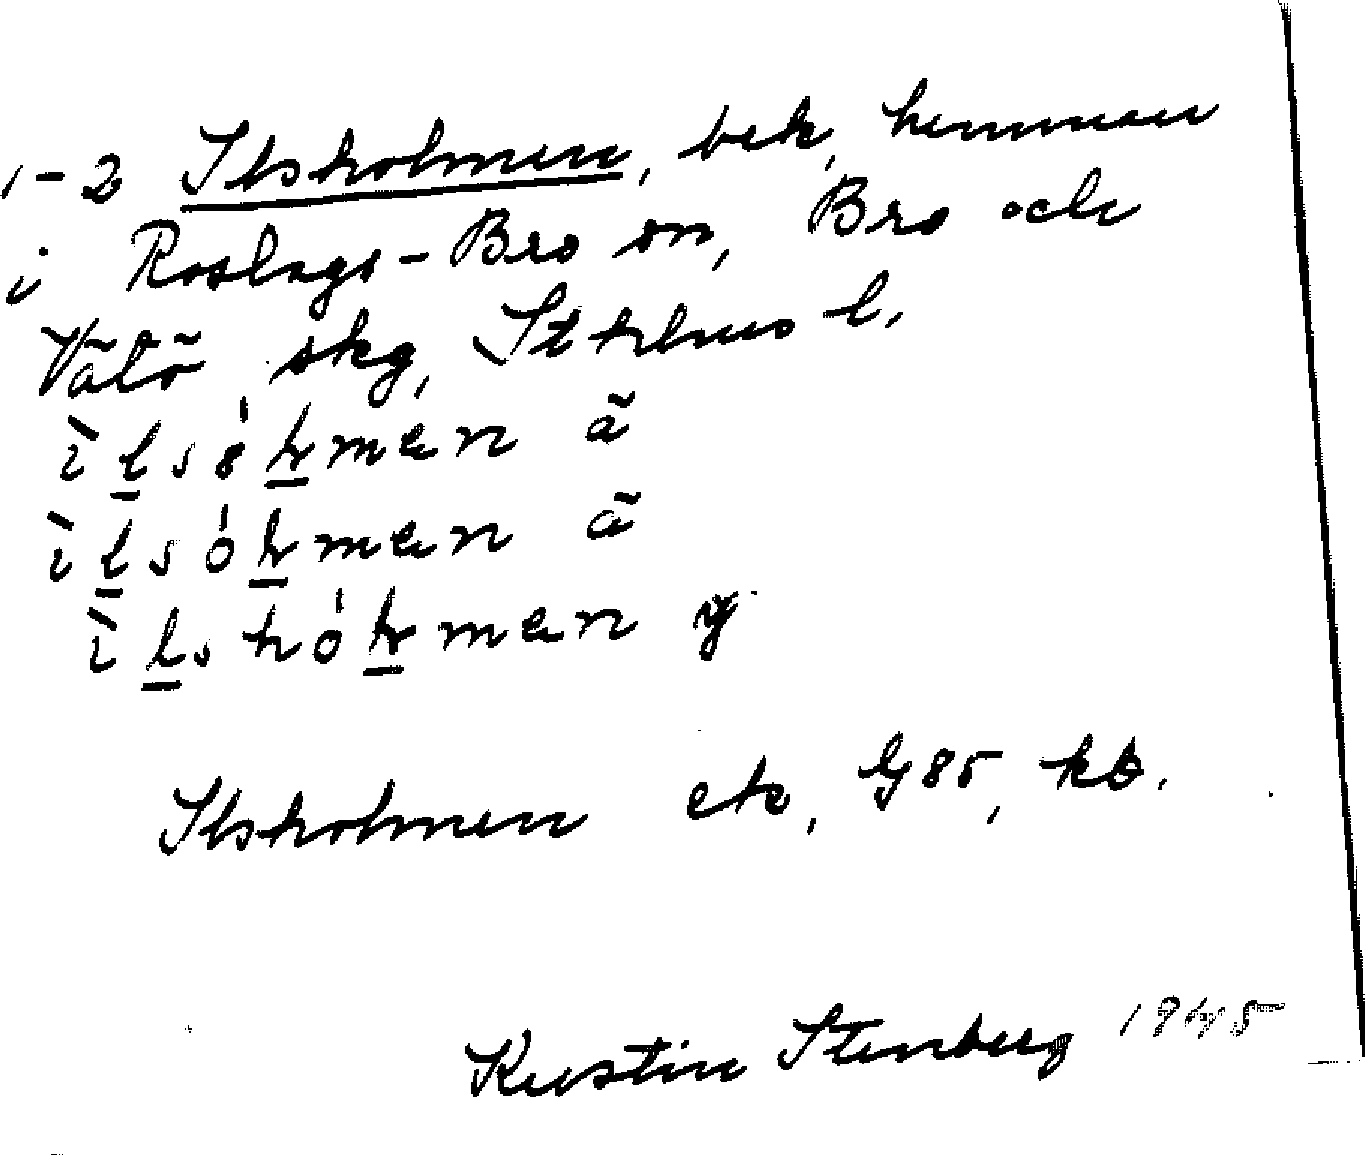 1-2 Ilsholmen, bek. hemman
i Roslags-Bro sn, Bro och
Vätö skg, Sthlms l.
ìlsómen ä
ìlsómen ä
ìlshómen y
Ilsholmen etc, G85, kb.
Kerstin Stenberg 1945